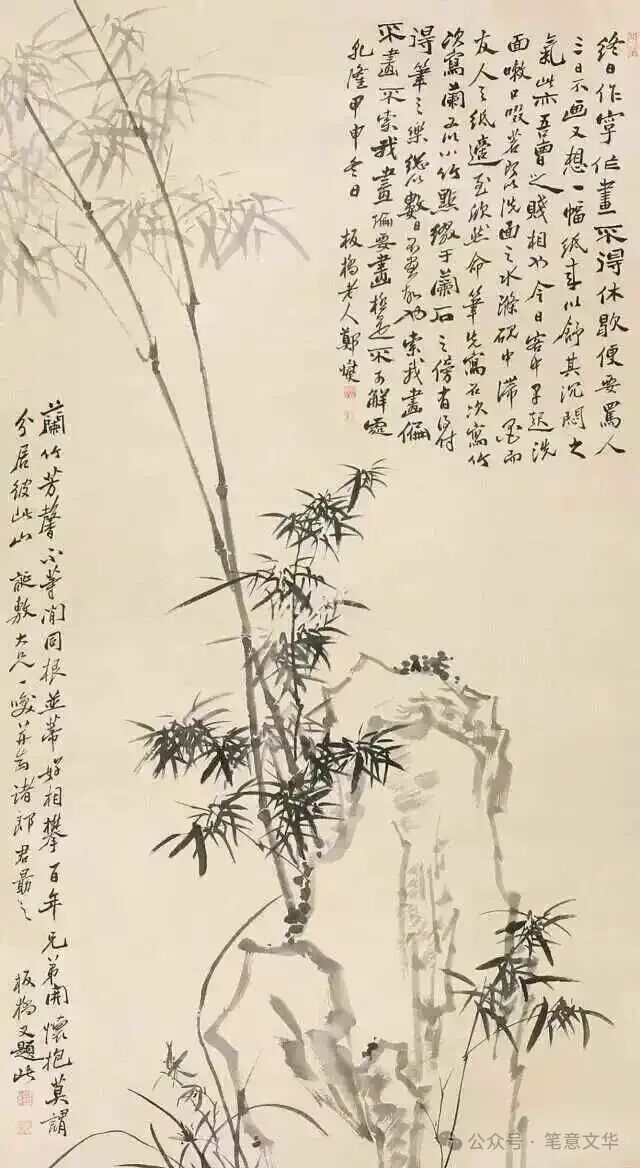 終日作字作畫不得休歇便要罵人
三日不画又想一幅紙來以舒其沉悶之
氣此亦吾曹之賤相也今日客中早起洗
面嗽口啜茗即以洗面之水滌硯中滯墨而
友人之紙適至欣然命筆先寫石次寫竹
次寫蘭又以小竹點綴于蘭石之傍
得筆之樂總以數日不畫故也索我畫偏
不畫不索我畫偏要畫極是不可解處
乾隆甲申冬日 板橋老人鄭燮
蘭竹芳馨不等閒同根並蒂好相攀百年兄弟開懷抱莫謂
分居彼此山 誕敷大兄一笑并示諸郎君勗之 板橋又題此
公众号 · 笔意文华